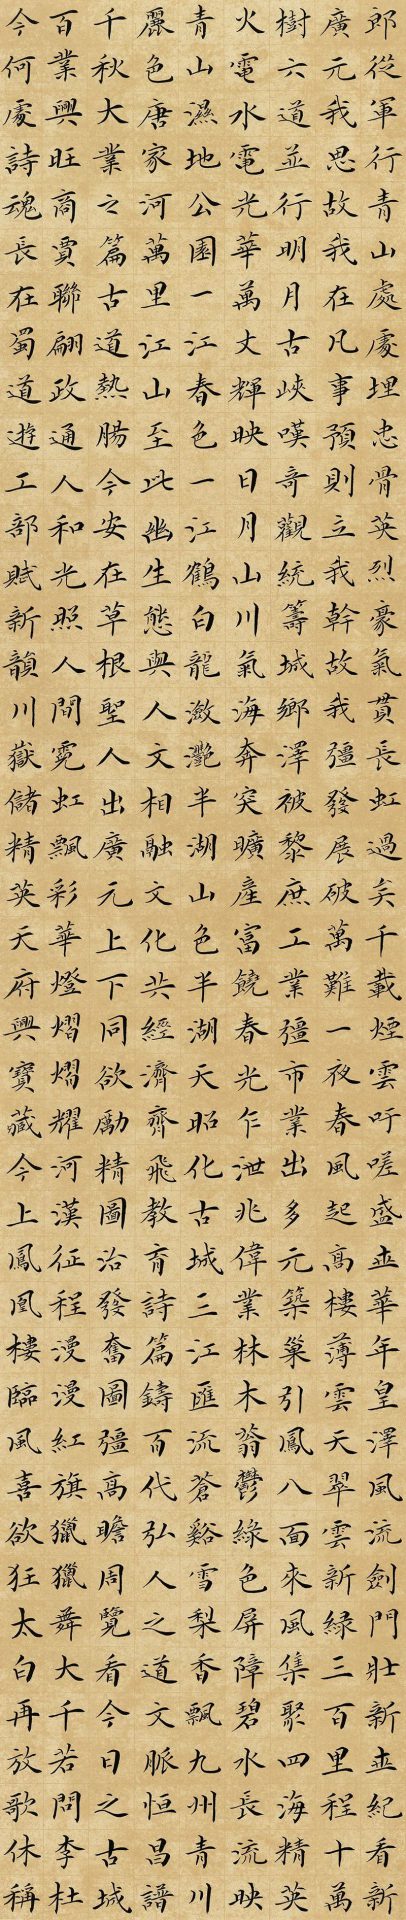 郎從軍行青山處處埋忠骨英烈豪氣貫長虹過矣千載煙雲吁嗟盛世華年皇澤風流劍門壯新世紀看新
廣元我思故我在凡事預則立我幹故我彊發展破萬難一夜春風起高樓薄雲天翠雲新綠三百里程十萬
樹六道並行明月古峽嘆奇觀統籌城鄉澤被黎庶工業彊市業出多元築巢引鳳八面來風集聚四海精英
火電水電光華萬丈輝映日月山川氣海奔突曠產富饒春光乍泄兆偉業林木蓊鬱綠色屏障碧水長流映
青山濕地公園一江春色一江鶴白龍瀲灩半湖山色半湖天昭化古城三江匯流蒼谿雪梨香飄九州青川
麗色唐家河萬里江山至此幽生態與人文相融文化共經濟齊飛教育詩篇鑄百代弘人之道文脈恒昌譜
千秋大業之篇古道熱腸今安在草根聖人出廣元上下同欲勵精圖治發奮圖彊高瞻周覽看今日之古城
百業興旺商賈聯翩政通人和光照人間霓虹飄彩華燈熠熠耀河漢征程漫漫紅旗獵獵舞大千若問李杜
今何處詩魂長在蜀道遊工部賦新韻川嶽儲精英天府興寶藏今上鳳凰樓臨風喜欲狂太白再放歌休稱